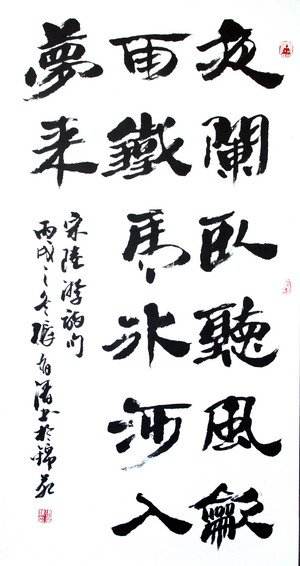 夜闌臥聽風龡
雨鐵馬冰河入
夢来
宋陸游詩句
丙戌之冬張書於錦